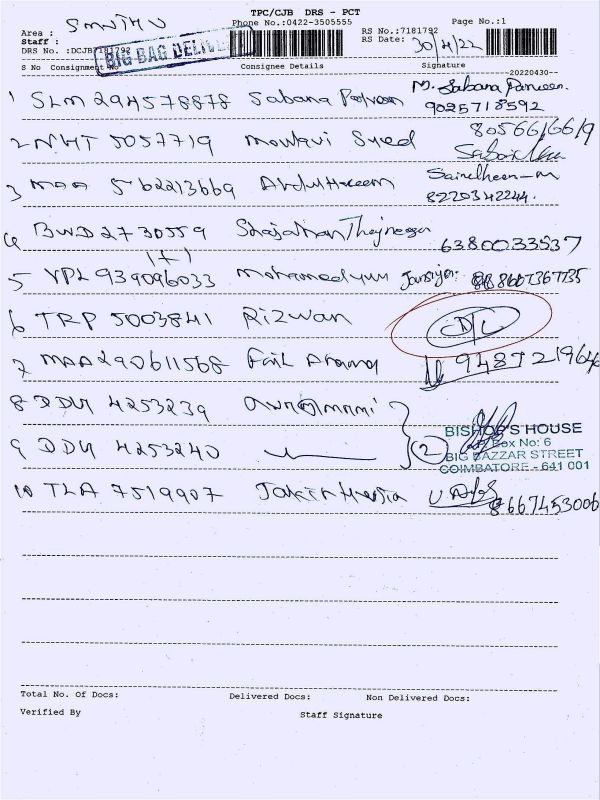 TPC/CJB DRS - PCT
Phone No.:0422-3505555 Page No.:1
Area :
Staff : RS No.:7181792
DRS No. :DCJB7181792 RS Date: 30/4/22
BIG BAG DELIVERY
S No Consignment No Consignee Details Signature
--20220430--
1 SLM 294578878 Sabana Parveen M. Sabana Parveen
9025718592
2 NMT 5057719 Moulavi Syed 8056616619
3 MAA 562213669 Abdul Hakeem
8220342244.
4 BWD 2730559 Shajahan 6380033537
(+)
5 VPL 939096033 Mohamed 8667367735
6 TRP 5003841 Rizwan D/L
7 MAA 290611568 9487219646
8 DDU 4253239
9 DDU 4253240 2
BISHOP'S HOUSE
Box No: 6
BIG BAZZAR STREET
COIMBATORE - 641 001
10 TLA 7519907 8667453006
Total No. Of Docs: Delivered Docs: Non Delivered Docs:
Verified By Staff Signature